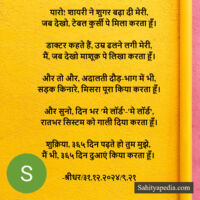 यारो! शायरी ने शुगर बढ़ा दी मेरी,
जब देखो, टेबल कुर्सी पे मिला करता हूँ।
डाक्टर कहते हैं, उम्र ढलने लगी मेरी,
मैं, जब देखो माशूक़ पे लिखा करता हूँ।
और तो और, अदालती दौड़-भाग में भी,
सड़क किनारे, मिसरा पूरा किया करता हूँ।
और सुनो, दिन भर 'मे लॉर्ड'-'मे लॉर्ड',
रातभर सिस्टम को गाली दिया करता हूँ।
शुक्रिया, ३६५ दिन पढ़ते हो तुम मुझे,
मैं भी, ३६५ दिन दुआएं किया करता हूँ।
-श्रीधर/३१.१२.२०२४/९.२१
S
Sahityapedia.com